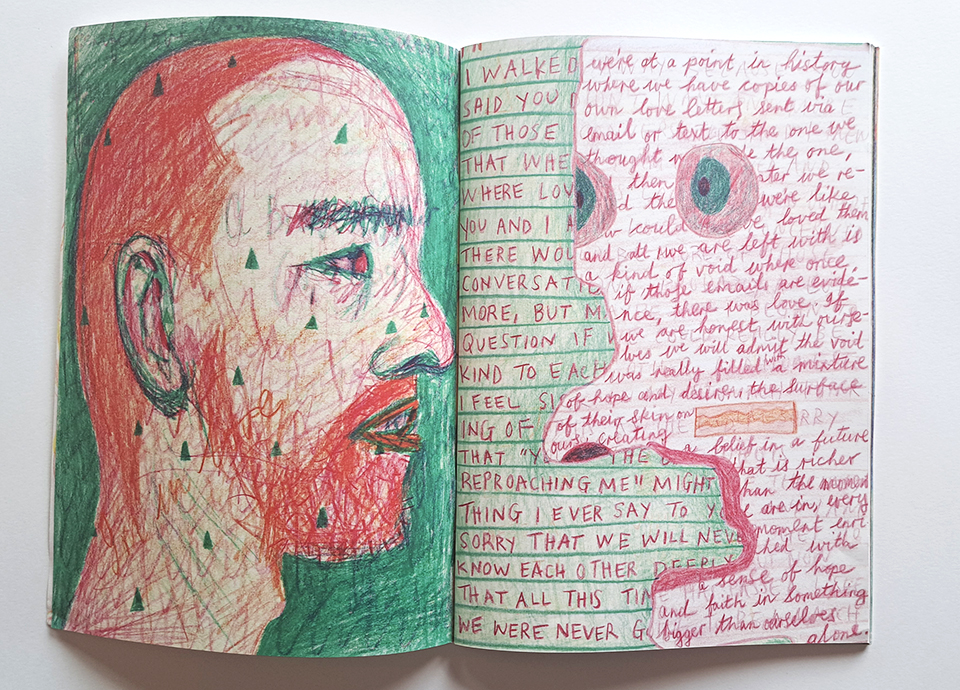 I WALKED
SAID YOU
OF THOSE
THAT WHE
WHERE LOV
YOU AND I A
THERE WOU
CONVERSATI
MORE, BUT M
QUESTION IF
KIND TO EACH
I FEEL SI
ING OF
THAT "Y THE
REPROACHING ME" MIGHT
THING I EVER SAY TO Y
SORRY THAT WE WILL NEVE
KNOW EACH OTHER DEEPLY
THAT ALL THIS TIM
WE WERE NEVER G
we're at a point in history
where we have copies of our
own love letters sent via
email or text to the one we
thought w de the one,
then ater we re-
d the were like
w could ve loved them
and all we are left with is
a kind of void where once,
if those emails are evide-
nce, there was love. If
we are honest with ourse-
lves we will admit the void
was really filled with a mixture
of hope and desire, the surface
of their skin on RRY
ours, creating
a belief in a future
that is richer
than the moment
we are in, every
moment enri
ched with
a sense of hope
and faith in something
bigger than ourselves
alone.